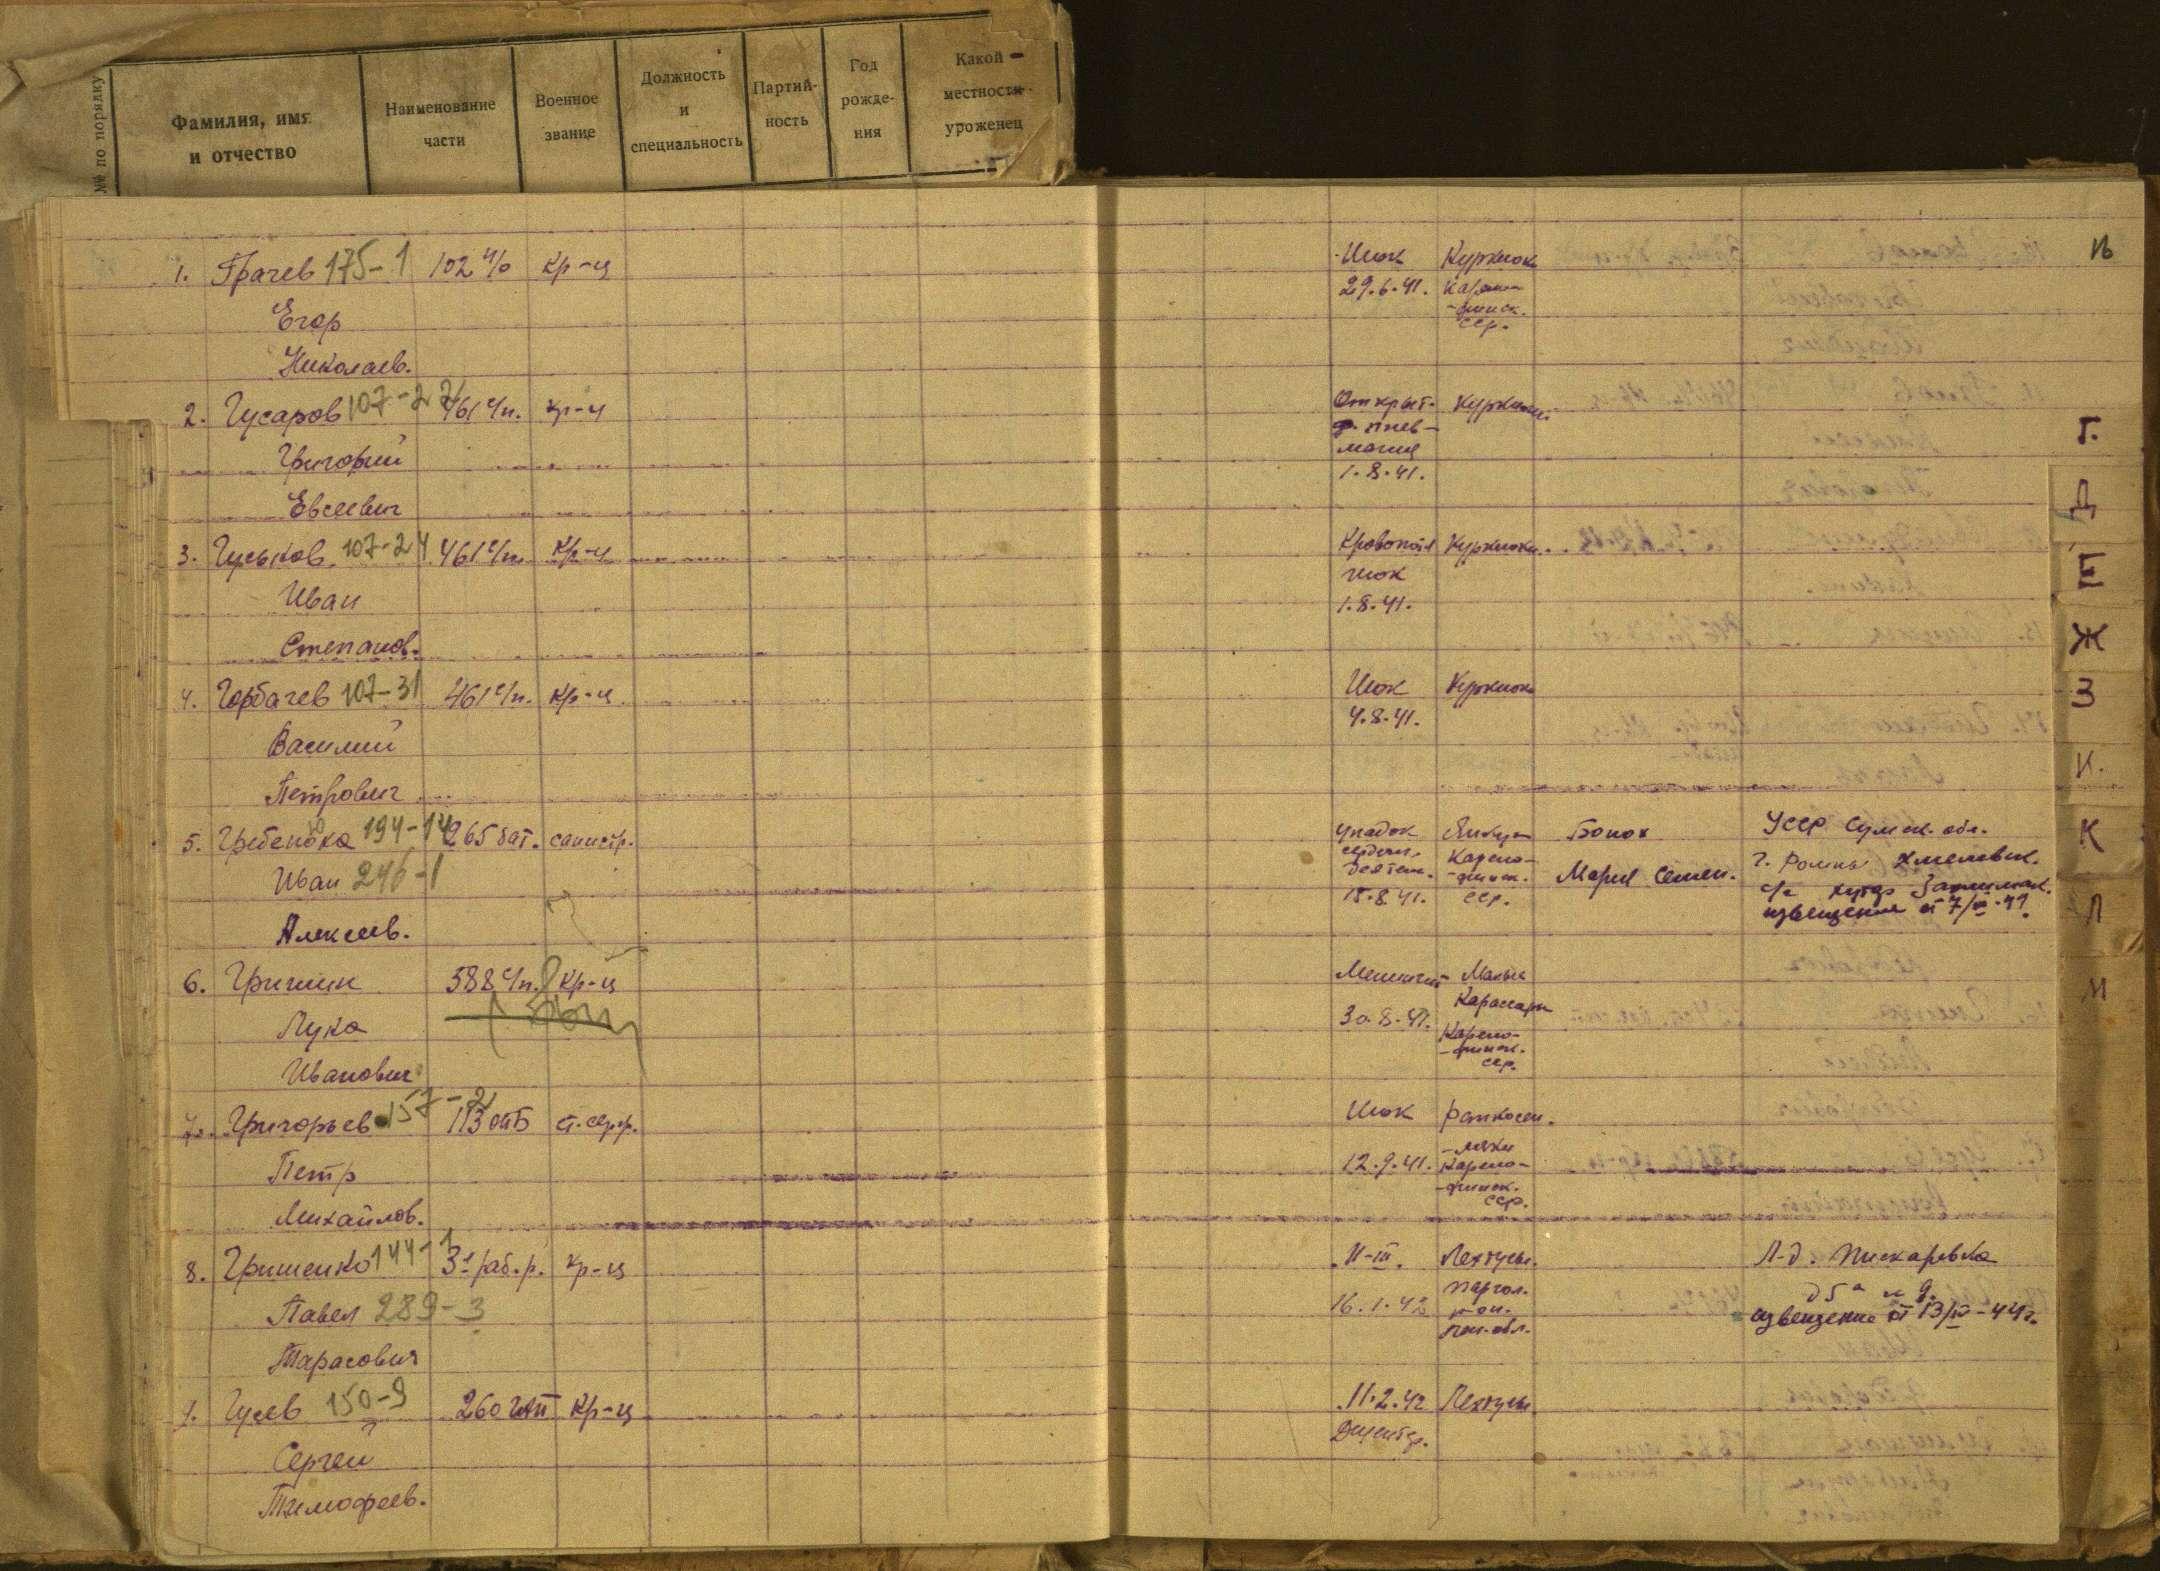 №№ по порядку
Фамилия, имя и отчество
Наименование части
Военное звание
Должность и специальность
Партийность
Год рождения
Какой местности уроженец
16
1. Грачев 175-1 102 кр-ц Шок Куркиок
29.6.41. Карело-финск. сср.
Егор
Николаев.
2. Гусаров 107-27 461 с/п. кр-ц Открыт. пневмония Куркиоки
Григорий 1.8.41.
Евсеевич
3. Гуськов 107-24 461 с/п. кр-ц Кровопот. Куркиоки
Иван шок
1.8.41.
Степанов.
4. Горбачев 107-31 461 с/п. кр-ц Шок Куркиок
4.8.41.
Василий
Петрович
5. Гребенюка 194-14 265 бат. санистр. упадок сердечн. деятел. Карело-финск. сср. Бопок УССР Сумск. обл.
Иван 246-1 15.8.41. Мария Семен. г. Ромны Хмелевск.
с/с хутор
извещение от 7/
Алексеев.
6. Гришин 588 с/п. кр-ц Менингит
Лука 30.8.41. Карело-финск. сср.
Иванович
7. Григорьев 157-2 113 отб ст. серж. Шок
Петр 12.9.41. Карело-финск. сср.
Михайлов.
8. Гришенко 144-1 3й раб. р. кр-ц II-III. Лехтусы.
Павел 289-3 16.1.42 Паргол. р-он. Лен. обл.
Л-д. Пискаревка
д 5а
извещение от 13/IV-44г.
Тарасович
9. Гусев 150-9 260 кр-ц 11.2.42 Лехтусы.
Дизентер.
Сергей
Тимофеев.
Г.
Д
Е
Ж
З
И.
К
Л
М